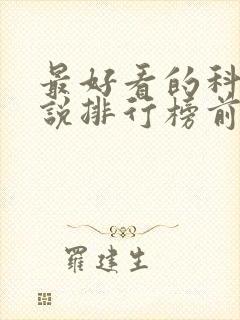 最好看的科
説排行榜前
羅建生